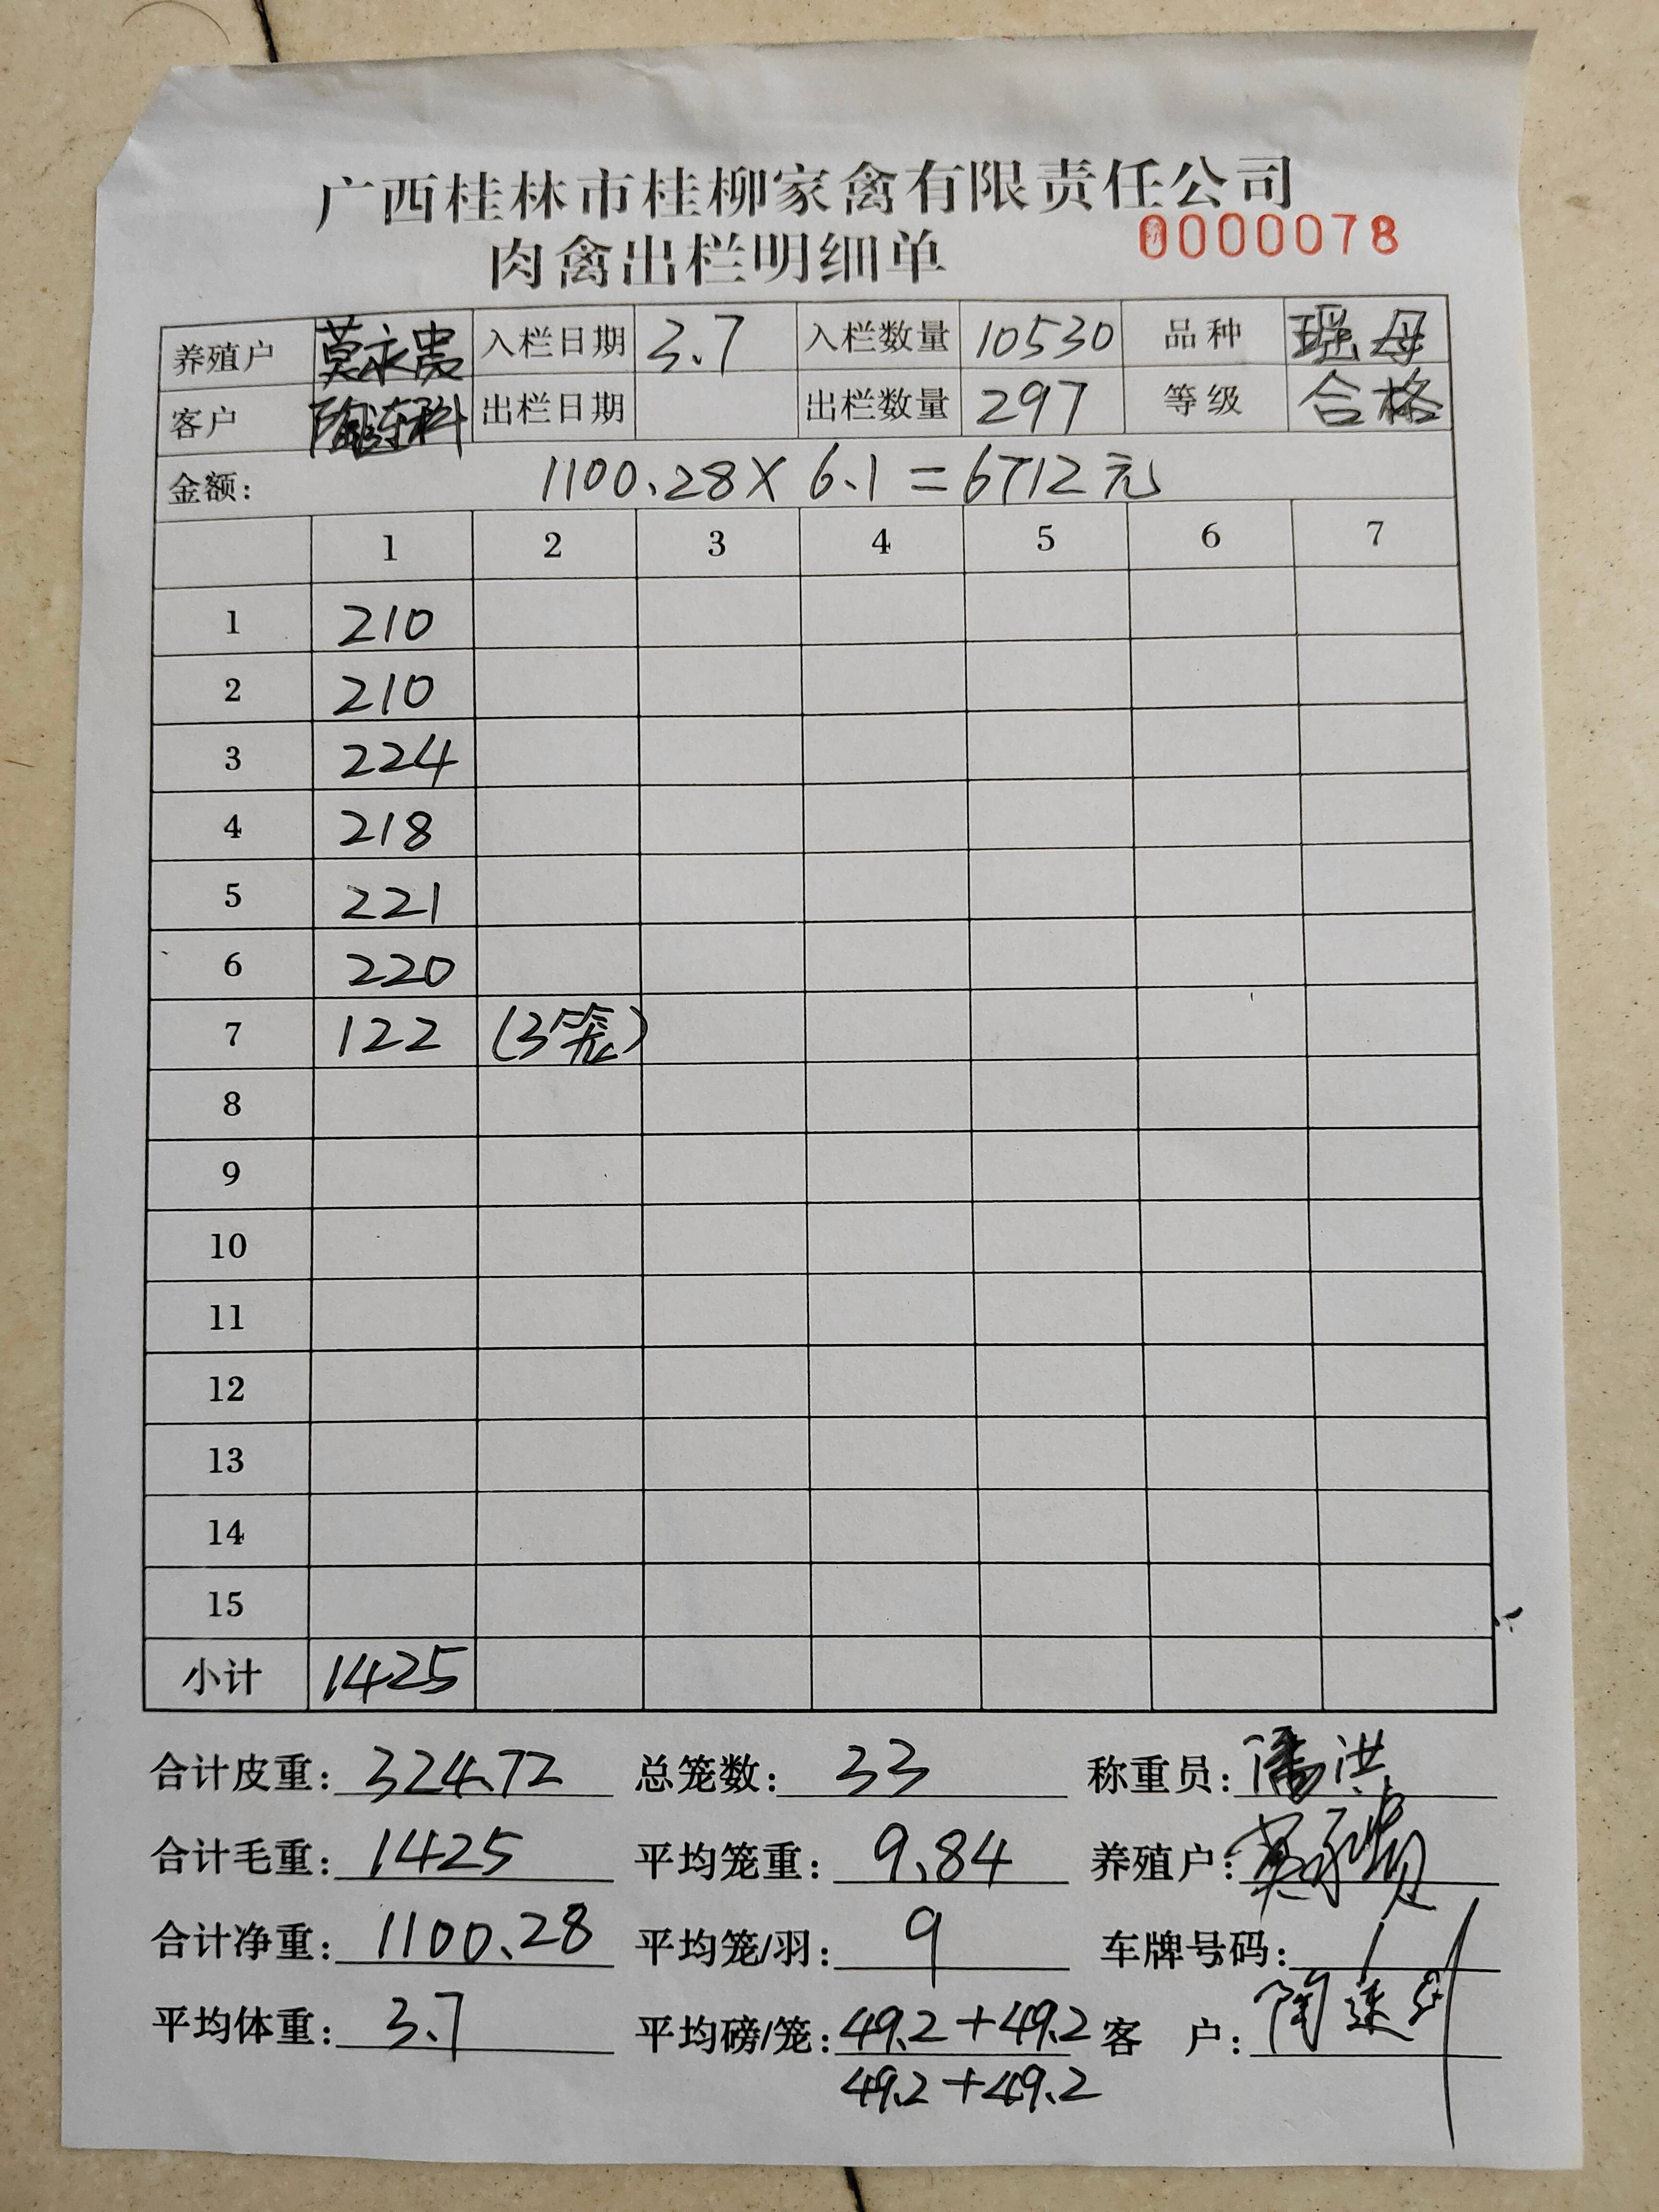 广西桂林市桂柳家禽有限责任公司
肉禽出栏明细单 0000078
养殖户 莫永贵 入栏日期 3.7 入栏数量 10530 品种 瑶母
客户 陶连科 出栏日期 出栏数量 297 等级 合格
金额: 1100.28×6.1=6712元
1 2 3 4 5 6 7
1 210
2 210
3 224
4 218
5 221
6 220
7 122 (3笼)
8
9
10
11
12
13
14
15
小计 1425
合计皮重: 324.72 总笼数: 33 称重员: 潘洪
合计毛重: 1425 平均笼重: 9.84 养殖户: 莫永贵
合计净重: 1100.28 平均笼/羽: 9 车牌号码: /
平均体重: 3.7 平均磅/笼: 49.2+49.2 客 户: 陶连科
49.2+49.2